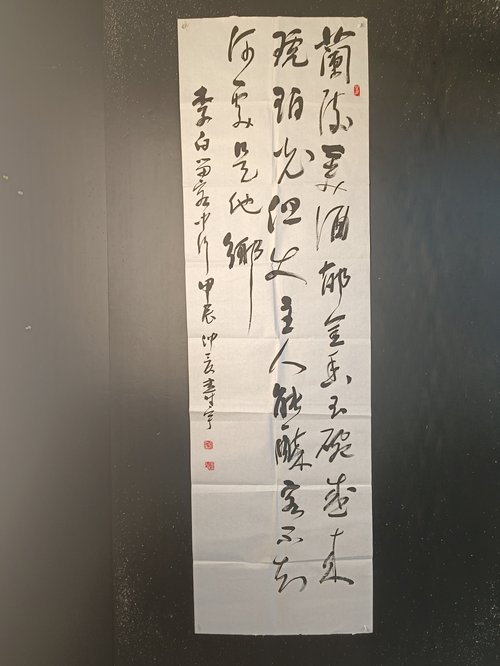 蘭陵美酒郁金香玉碗盛来
琥珀光但使主人能醉客不知
何處是他鄉
李白客中行甲辰仲夏